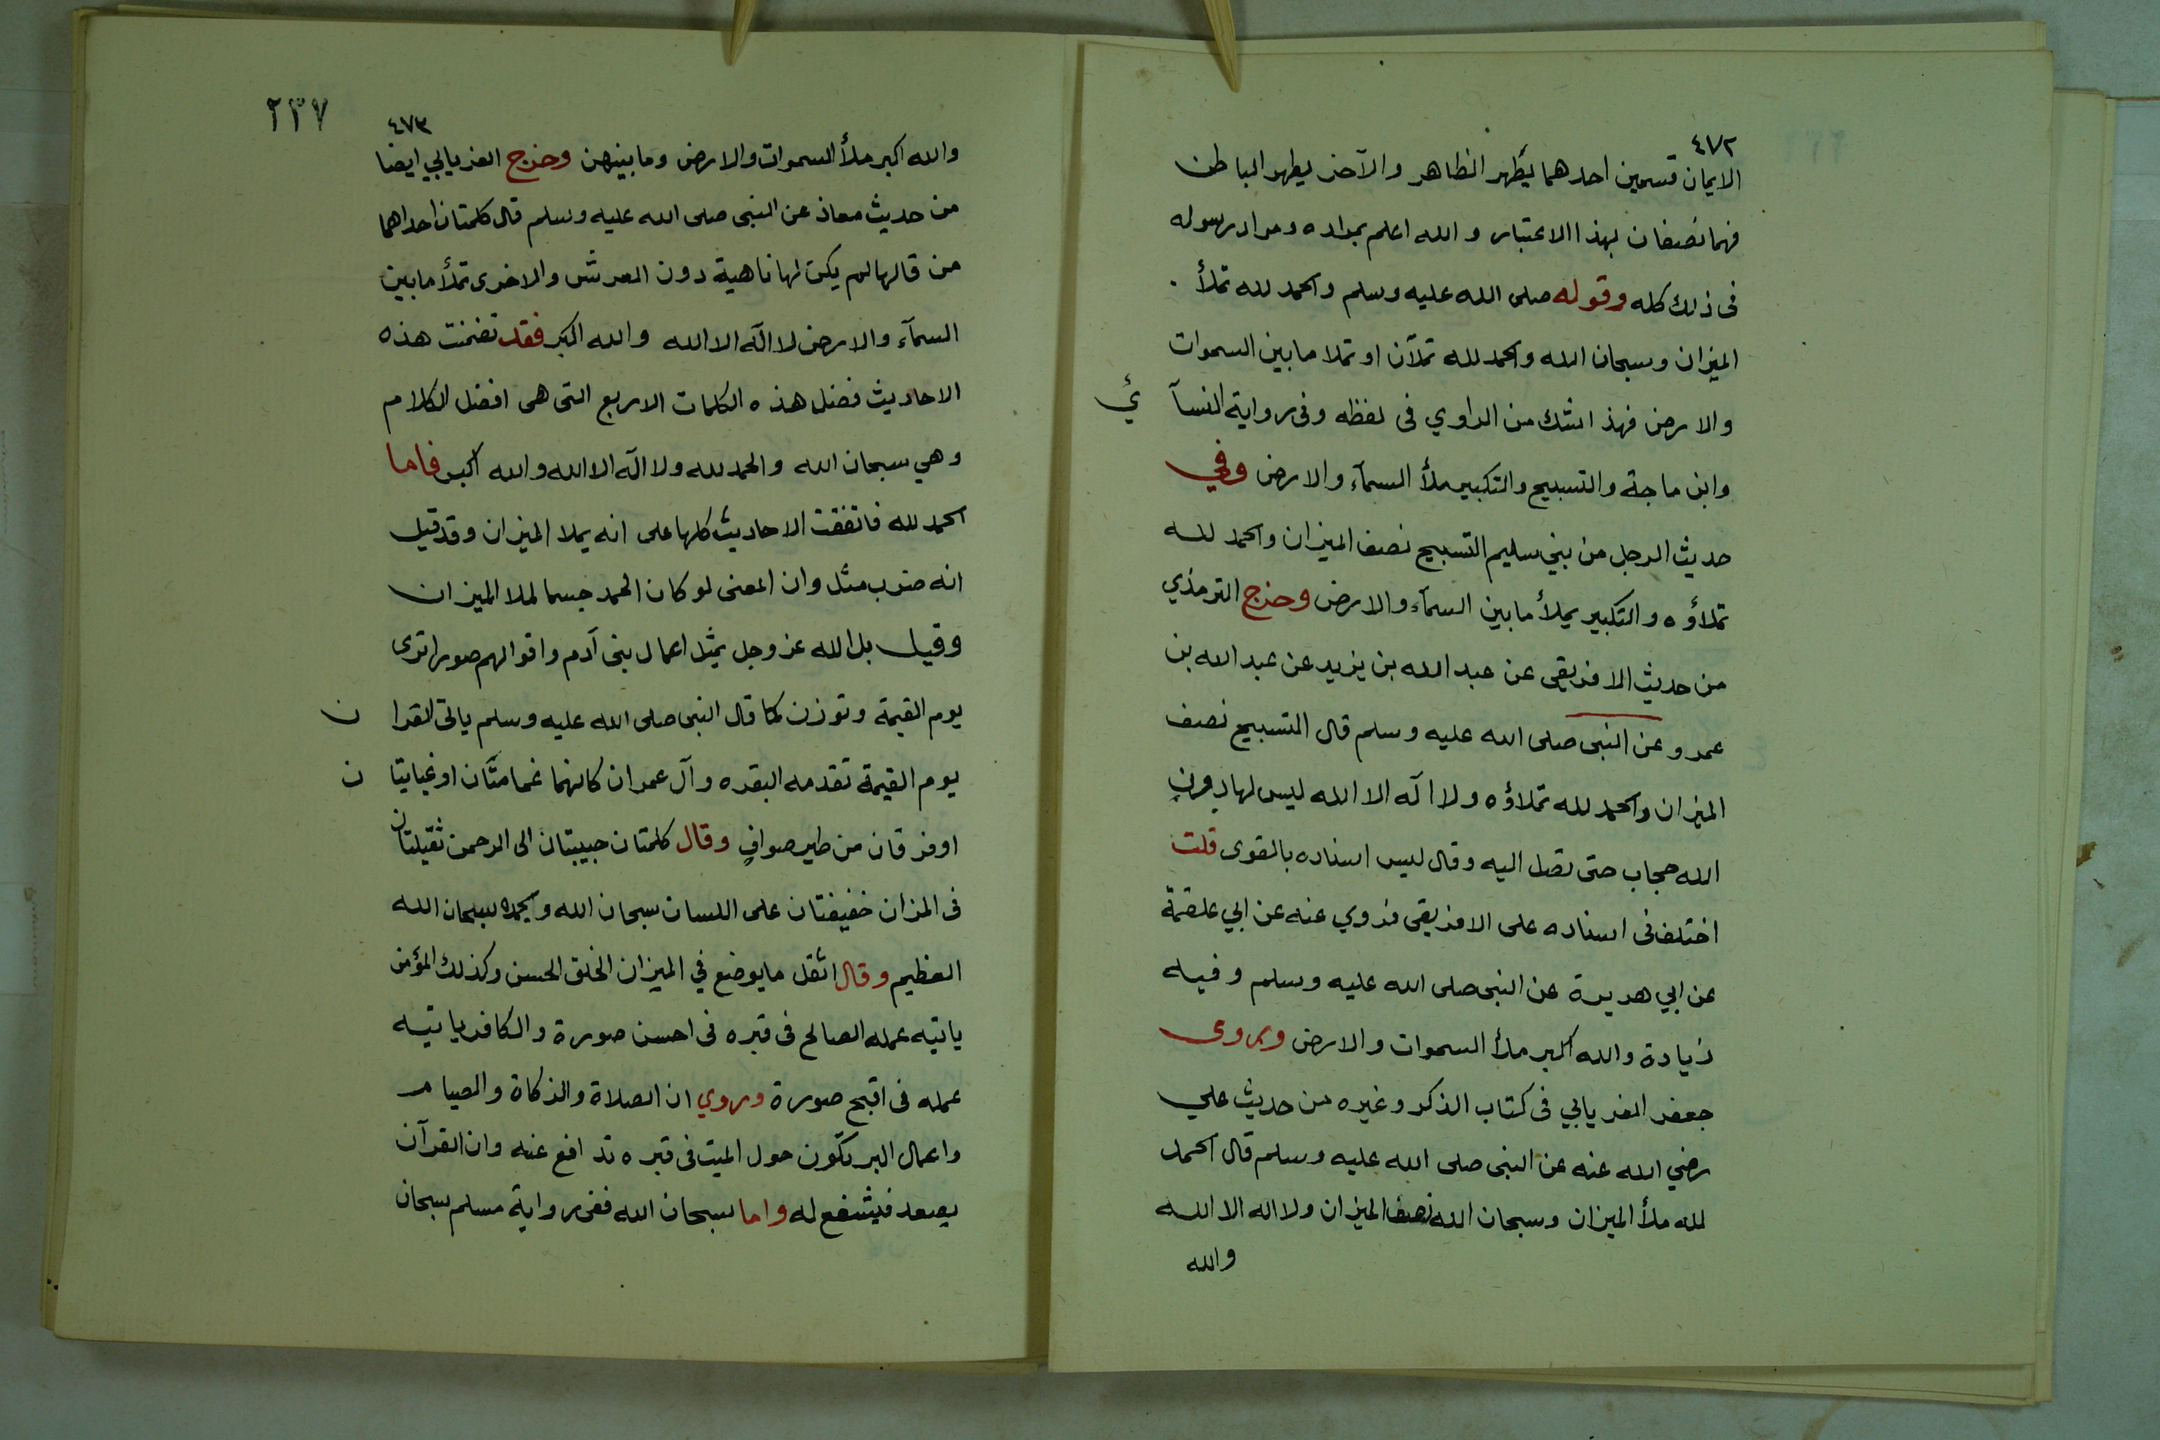 ٤٧٢
الايمان قسمين احدهما يطهر الظاهر والآخر يطهر الباطن
فهما نصفان بهذا الاعتبار و الله اعلم بمراده ومراد رسوله
فى ذلك كله وقوله صلى الله عليه وسلم والحمد لله تملأ .
الميزان وسبحان الله والحمد لله تملآن او تملا ما بين السموات
والارض فهذا شك من الراوي فى لفظه وفى رواية النسآئي
وابن ماجة والتسبيح والتكبير ملأ السمآء والارض وفي
حديث الرجل من بني سليم التسبيح نصف الميزان والحمد لله
تملاؤه والتكبير يملأ ما بين السمآء والارض وخرج الترمذي
من حديث الافريقى عن عبد الله بن يزيد عن عبد الله بن
عمرو عن النبى صلى الله عليه وسلم قال التسبيح نصف
الميزان والحمد لله تملاؤه ولا آله الا الله ليس لها دون
الله حجاب حتى تصل اليه وقال ليس اسناده بالقوى قلت
اختلف فى اسناده على الافريقى فروي عنه عن ابي علقمة
عن ابي هريرة عن النبى صلى الله عليه وسلم وفيه
زيادة والله اكبر ملأ السموات والارض ويروى
جعفر الفريابي فى كتاب الذكر وغيره من حديث علي
رضي الله عنه عن النبى صلى الله عليه وسلم قال الحمد
لله ملأ الميزان وسبحان الله نصف الميزان ولا اله الا الله
والله
٢٣٧
٤٧٣
والله اكبر ملأ السموات والارض وما بينهن وخرج الفريابي ايضا
من حديث معاذ عن النبى صلى الله عليه وسلم قال كلمتان احداهما
من قالها لم يكن لها ناهية دون العرش والاخرى تملأ ما بين
السمآء والارض لا آله الا الله والله اكبر فقد تضمنت هذه
الاحاديث فضل هذه الكلمات الاربع التى هى افضل الكلام
وهي سبحان الله والحمد لله ولا آله الا الله والله اكبر فاما
الحمد لله فاتفقت الاحاديث كلها على انه يملا الميزان وقد قيل
انه ضرب مثل وان المعنى لو كان الحمد جسما لملا الميزان
وقيل بل الله عز وجل يمثل اعمال بنى آدم واقوالهم صورا ترى
يوم القيمة وتوزن كما قال النبى صلى الله عليه وسلم ياتى القران
يوم القيمة تقدمه البقره وآل عمران كانهما غمامتان او غيايتان
او فرقان من طير صواف وقال كلمتان حبيبتان الى الرحمن ثقيلتان
فى المزان خفيفتان على اللسان سبحان الله وبحمده سبحان الله
العظيم وقال اثقل ما يوضع في الميزان الخلق الحسن وكذلك المؤمن
ياتيه عمله الصالح فى قبره فى احسن صورة والكافر ياتيه
عمله فى اقبح صورة وروي ان الصلاة والزكاة والصيام
واعمال البر تكون حول الميت فى قبره تدافع عنه وان القرآن
يصعد فيشفع له واما سبحان الله ففى رواية مسلم سبحان